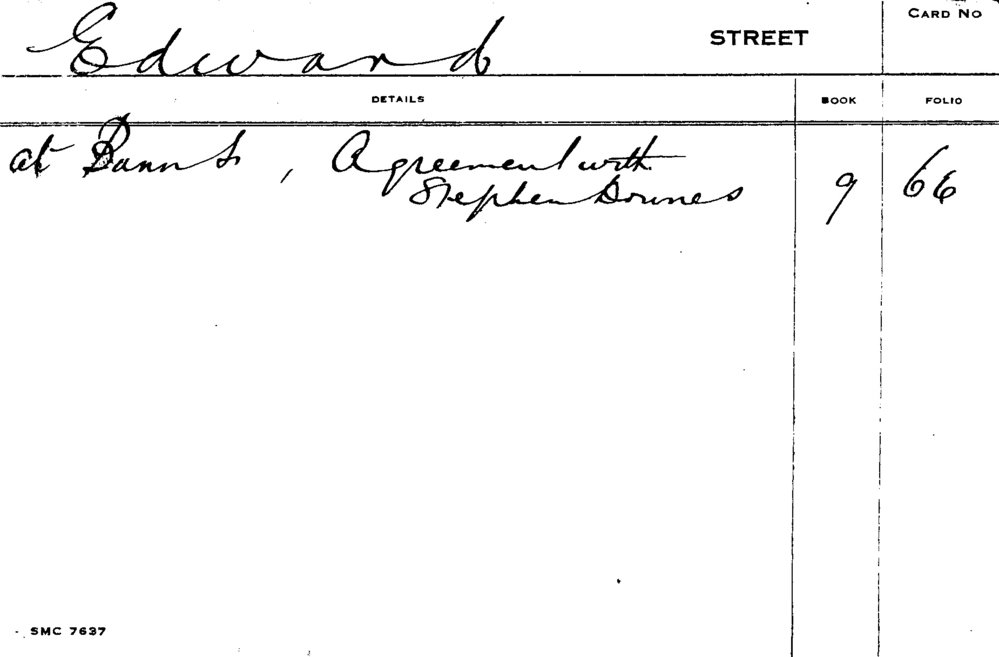 Edward STREET CARD NO
DETAILS BOOK FOLIO
at Bann St, Agreement with
Stephen Downes 9 66
SMC 7637